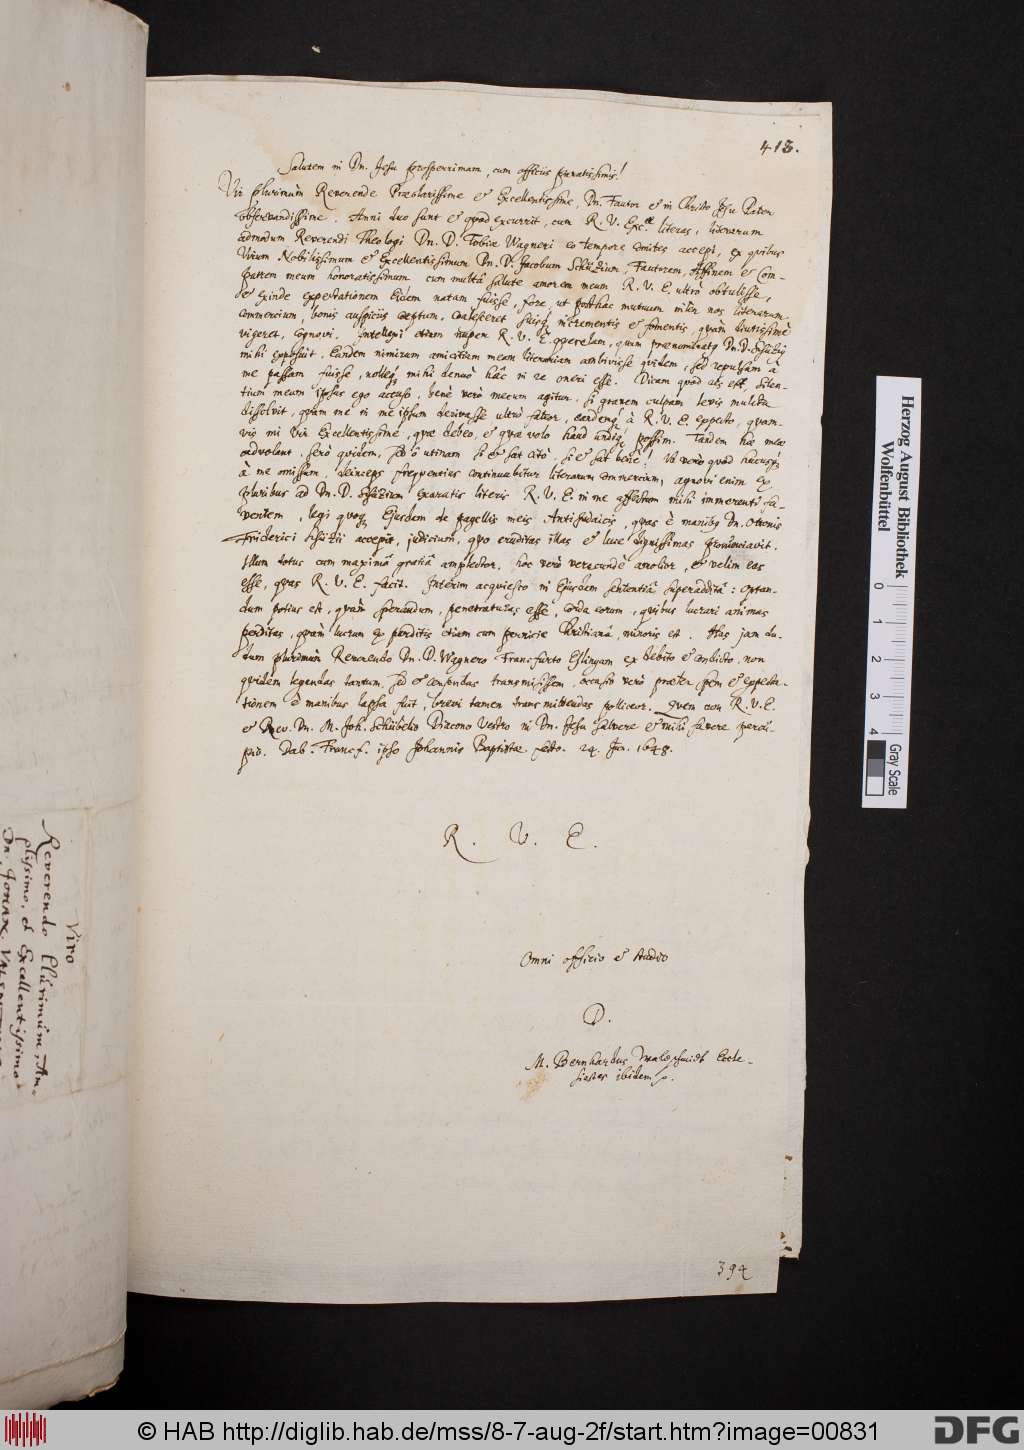 413.
Salutem in Dn. Jesu prosperrimam, cum officiis paratissimis!
Vir plurimùm Reverende Præclarissime et Excellentissime, Dn. Fautor et in Christo Jesu Pater
observandissime. Anni duo sunt et quod excurrit, cum R. V. Exc. literas, literarum
admodum Reverendi Theologi Dn. D. Tobiæ Wagneri eo tempore comites accepi, ex quibus
Virum Nobilissimum et Excellentissimum Dn. D. Jacobum Schützium, Fautorem, Affinem et Com-
patrem meum honoratissimum cum multâ salute amorem meum R. V. E. ultrò obtulisse,
et exinde expectationem Eidem natam fuisse, fore, ut posthac mutuum inter nos literarum
commercium, bonis auspiciis cœptum, coalesceret suisq incrementis et fomentis, quàm diutissimè
vigeret, cognovi. Intellexi etiam nuper R. V. E. querelam, quam prænominatq Dn. D. Schüziq
mihi exposuit, Eandem nimirum amicitiam meam literariam ambivisse quidem, sed repulsam à
me passam fuisse, nolleq mihi denuò hâc in re oneri esse. Dicam quod res est, silen-
tium meum ipsus ego accuso, benè verò mecum agitur, si gravem culpam levis mulcta
dissolvit, quam me in me ipsum derivasse ultrò fateor, eandemq à R. V. E. expecto, quam-
vis mi Vir Excellentissime, quæ debeo, et quæ volo haud undiq possim. Tandem hæ meæ
advolant. Serò quidem, sed ô utinam si et sat citò, si et sat benè! Ut verò quod hucusq
à me omissum, deinceps frequentius continuabitur literarum commercium, agnovi enim ex
pluribus ad Dn. D. Schüzium exaratis literis R. V. E. in me affectum mihi immerenti fa-
ventem, legi quoq Ejusdem de pagellis meis Antijudaicis, quas è manibq Dn. Otonis
Friderici Schüzii accepit, judicium, quo eruditas illas et luce dignissimas pronunciavit.
Illum totus cum maximâ gratiâ amplector. hoc verò verecundè amolior, et velim eas
esse, quas R. V. E. facit. Interim acquiesco in Ejusdem sententiâ superadditâ: optan-
dum potius est, quàm sperandum, penetraturas esse, corda eorum, quibus lucrari animas
perditas, quàm lucrum ex perditis etiam cum pernicie Christianâ, minoris est. Has jam du-
dum plurimùm Reverendo Dn. D. Wagnero Francfurto Eslingam ex debito et condicto, non
quidem legendas tantum, sed et censendas transmisissem, occasio verò præter spem et expecta-
tionem è manibus lapsa fuit, brevi tamen transmittendas polliceor. Quem cum R. V. E.
et Rev. Dn. M. Joh. Schübelio Diacono Vestro in Dn. Jesu salvere et mihi favere percu-
pio. Dab. Francf. ipso Johannis Baptistæ festo. 24. Jun. 1648.
R. V. E.
Omni officio et studio
D.
M. Bernhardus Waldschmidt Eccle-
siastes ibidem
394
Viro
Reverendo Plurimùm, Am-
plissimo, et Excellentissimo
Dn. JOHAN. VALENTINO
Herzog August Bibliothek
Wolfenbüttel
0 1 2 3 4
Gray Scale
© HAB http://diglib.hab.de/mss/8-7-aug-2f/start.htm?image=00831
DFG